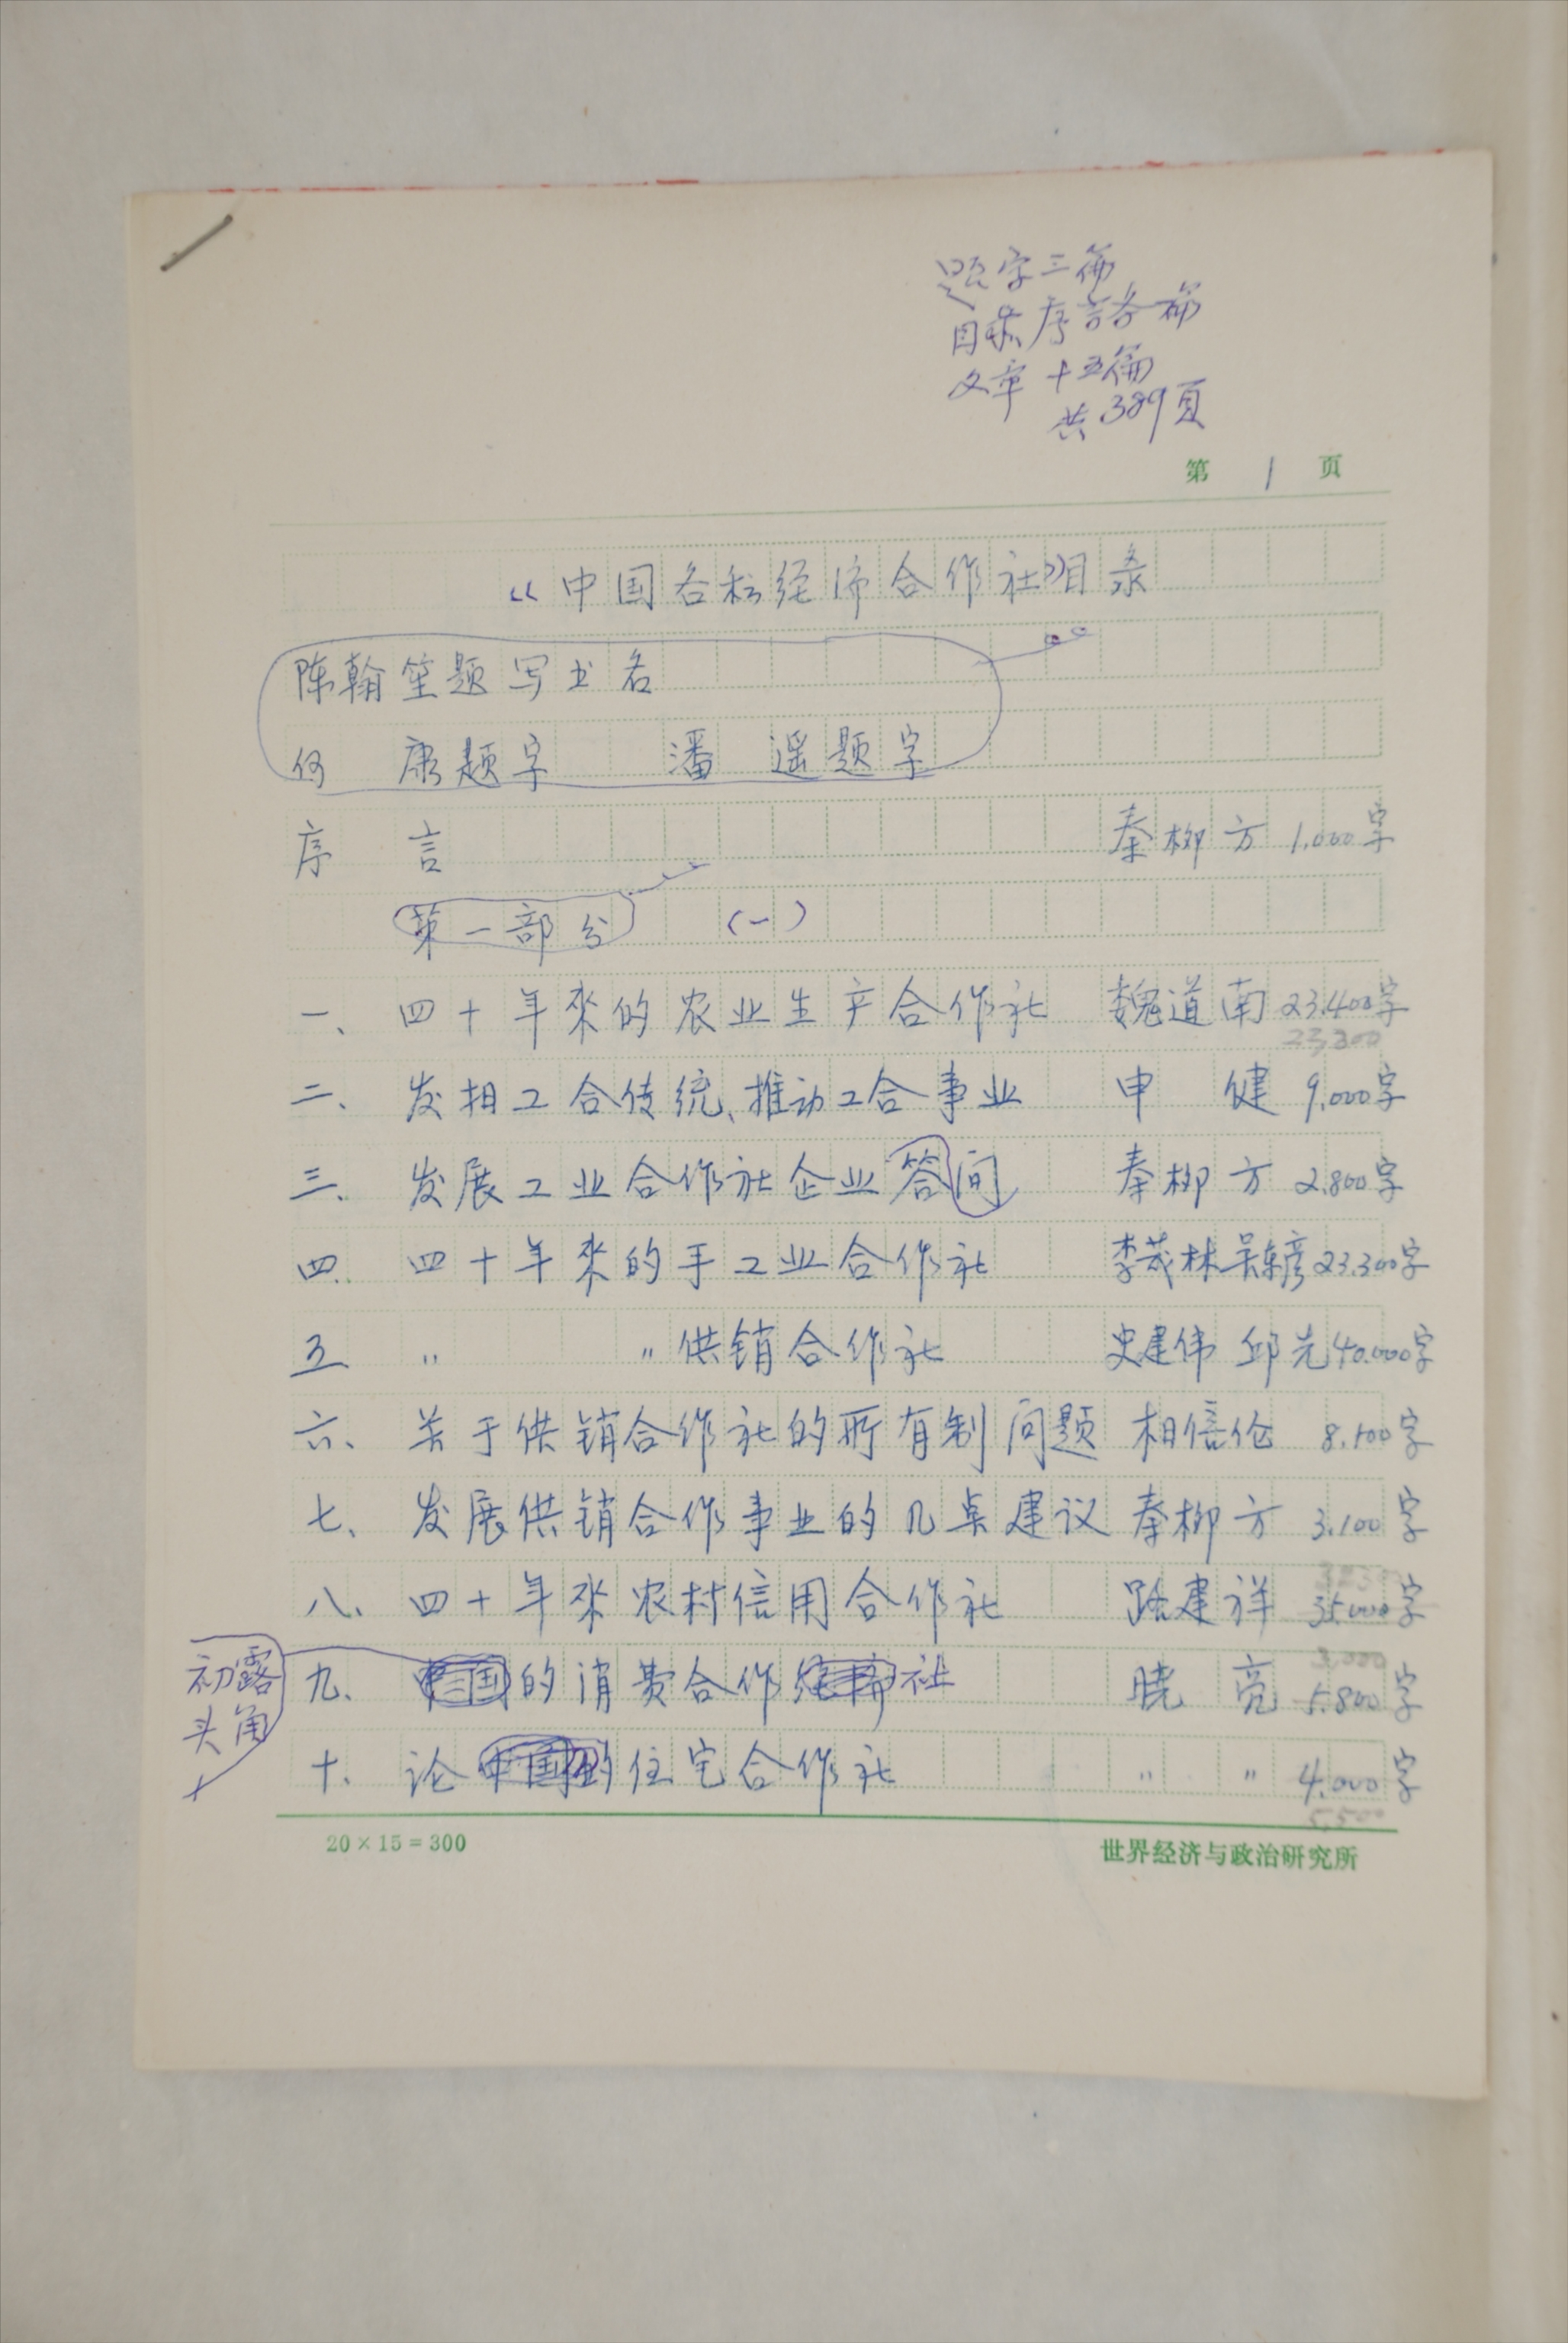 题字三篇
目录序言各一篇
文章十五篇
共389页
第 1 页
《中国各种经济合作社》目录
陈翰笙题写书名
何 康题字 潘 遥题字
序 言 秦柳方 1.000字
第一部分 (一)
一、四十年来的农业生产合作社 魏道南 23.400字
23,300
二、发扬工合传统、推动工合事业 申 健 9.000字
三、发展工业合作社企业答问 秦柳方 2.800字
四、四十年来的手工业合作社 李茂林 23.300字
五 〃 〃供销合作社 史建伟 邱先 40.000字
六、关于供销合作社的所有制问题 相信伦 8.100字
七、发展供销合作事业的几点建议 秦柳方 3.100字
八、四十年来农村信用合作社 路建祥 35.000字
3,000
初露头角
九、中国的消费合作经济社 晓 亮 5.800字
十、论中国的住宅合作社 〃 〃 4.000字
5,500
20×15=300 世界经济与政治研究所